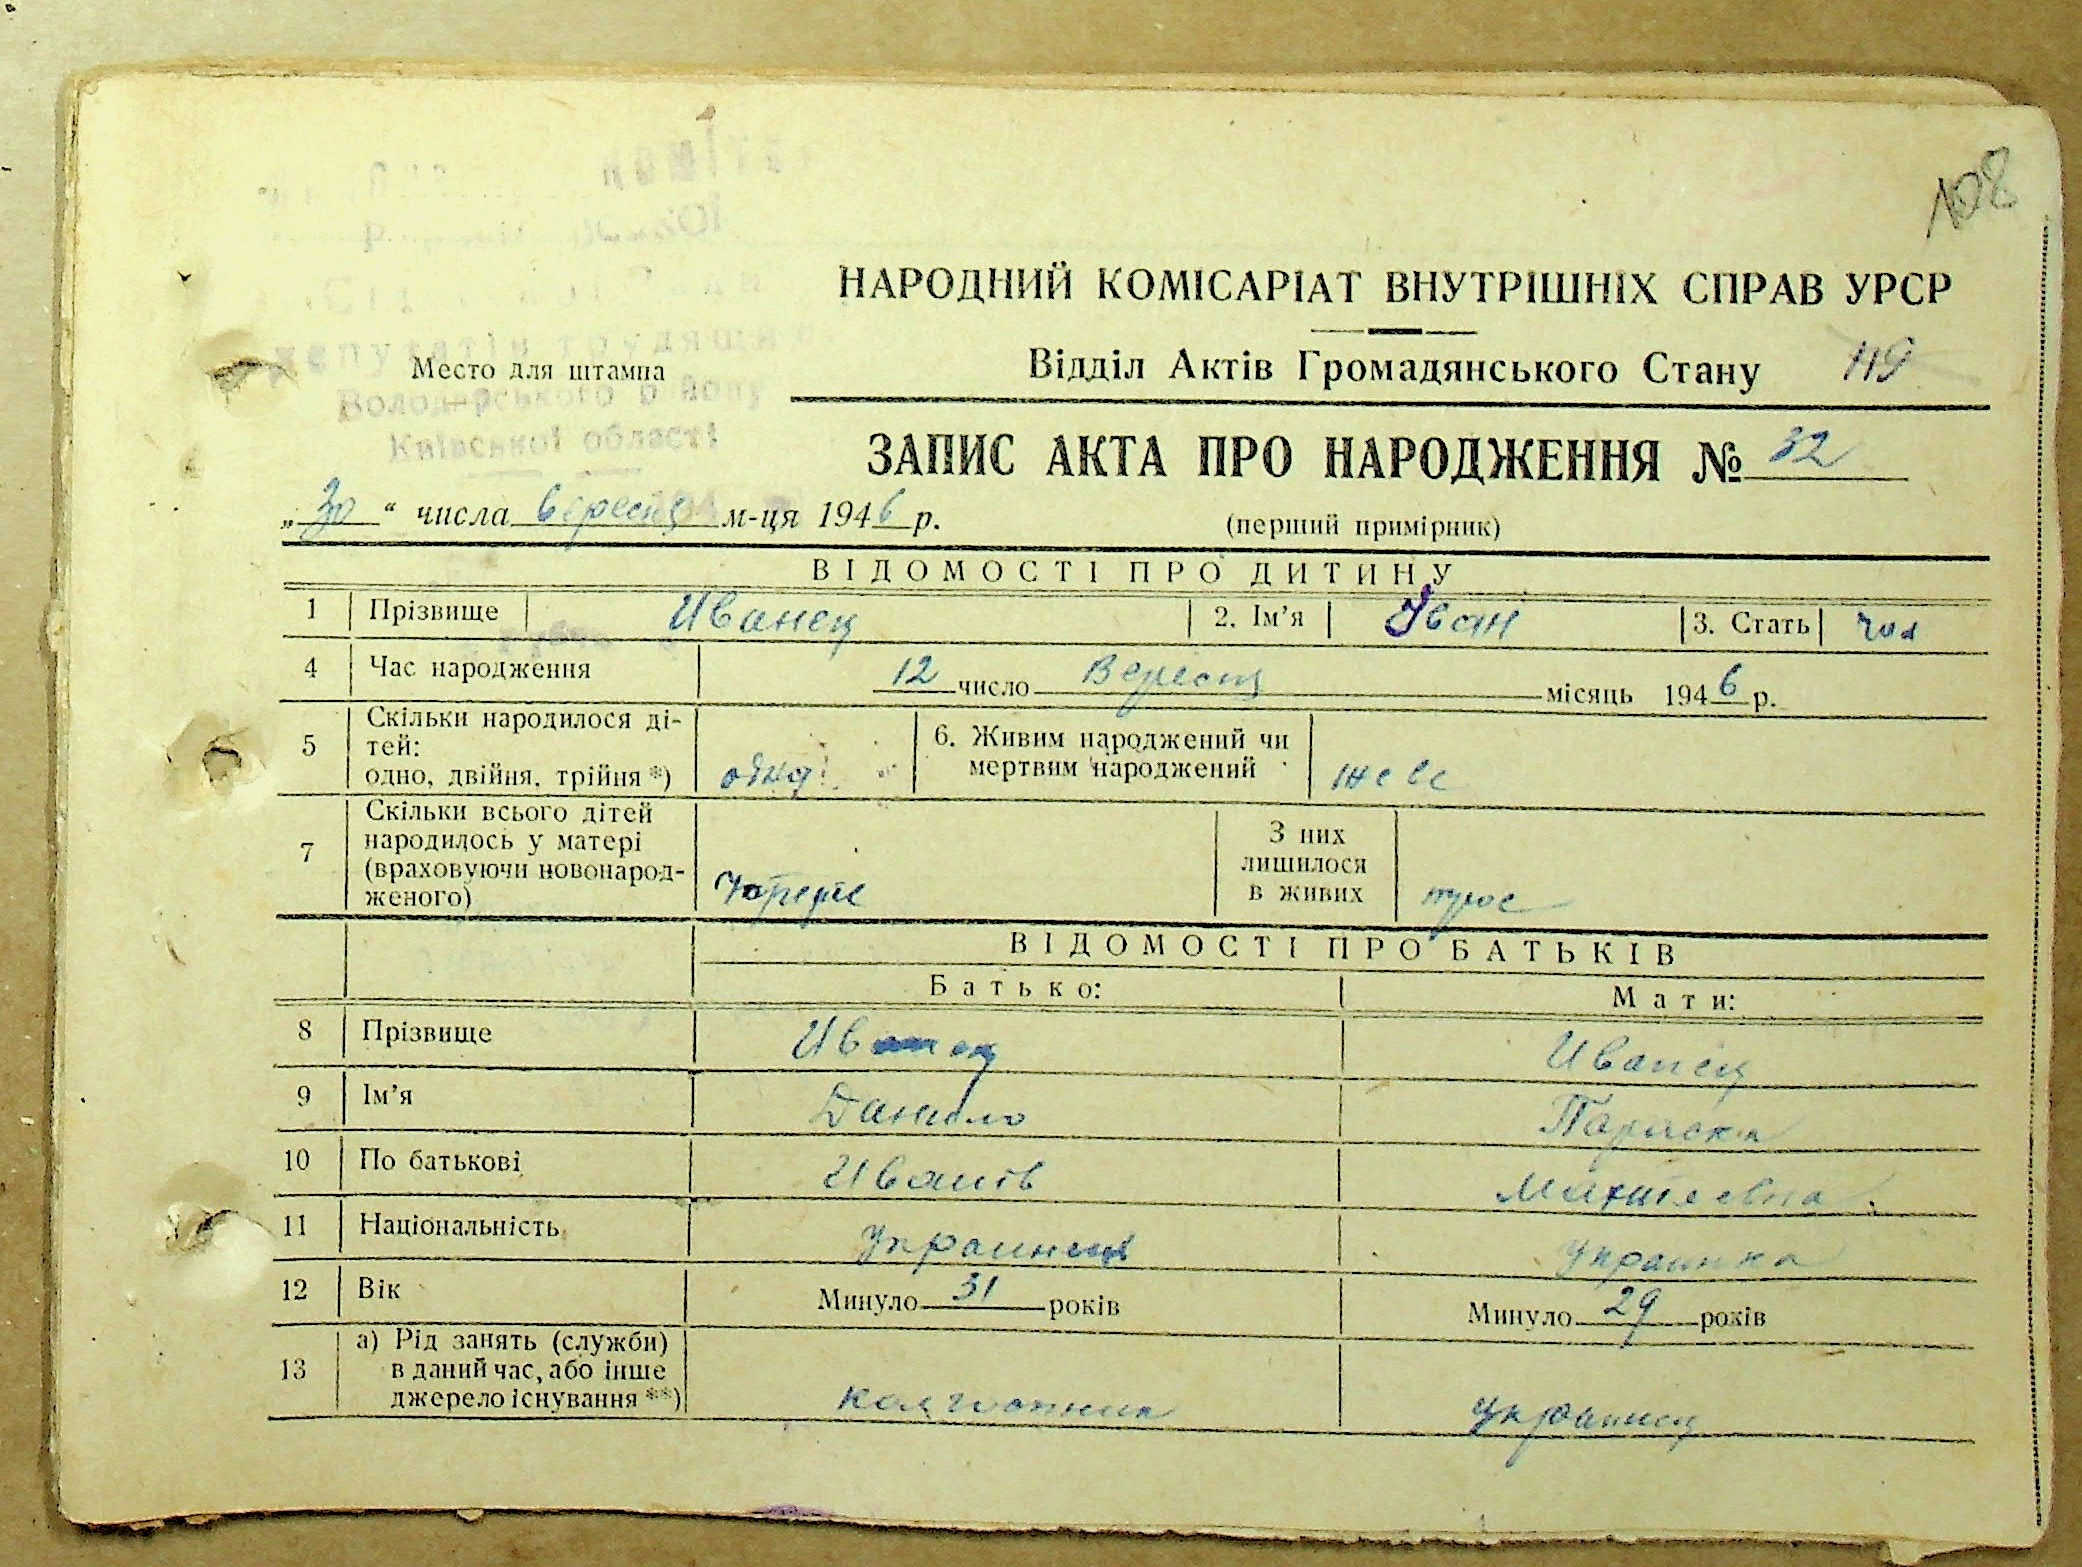 108
НАРОДНИЙ КОМІСАРІАТ ВНУТРІШНІХ СПРАВ УРСР
Відділ Актів Громадянського Стану 119
Место для штампа
депутатів трудящих
Володарського району
Київської області
ЗАПИС АКТА ПРО НАРОДЖЕННЯ № 32
„30“ числа вересня м-ця 1946 р. (перший примірник)
ВІДОМОСТІ ПРО ДИТИНУ
1 Прізвище Иванец 2. Ім'я Іван 3. Стать чол
4 Час народження 12 число Вересня місяць 1946 р.
5 Скільки народилося ді-
тей:
одно, двійня, трійня *) одно
6. Живим народжений чи
мертвим народжений живе
7 Скільки всього дітей
народилось у матері
(враховуючи новонарод-
женого)
З них
лишилося
в живих троє
ВІДОМОСТІ ПРО БАТЬКІВ
Батько: Мати:
8 Прізвище Иванец Иванец
9 Ім'я Данило Параска
10 По батькові Иванів
11 Національність украинець украинка
12 Вік Минуло 31 років Минуло 29 років
13 а) Рід занять (служби)
в даний час, або інше
джерело існування **) колгоспник украинец